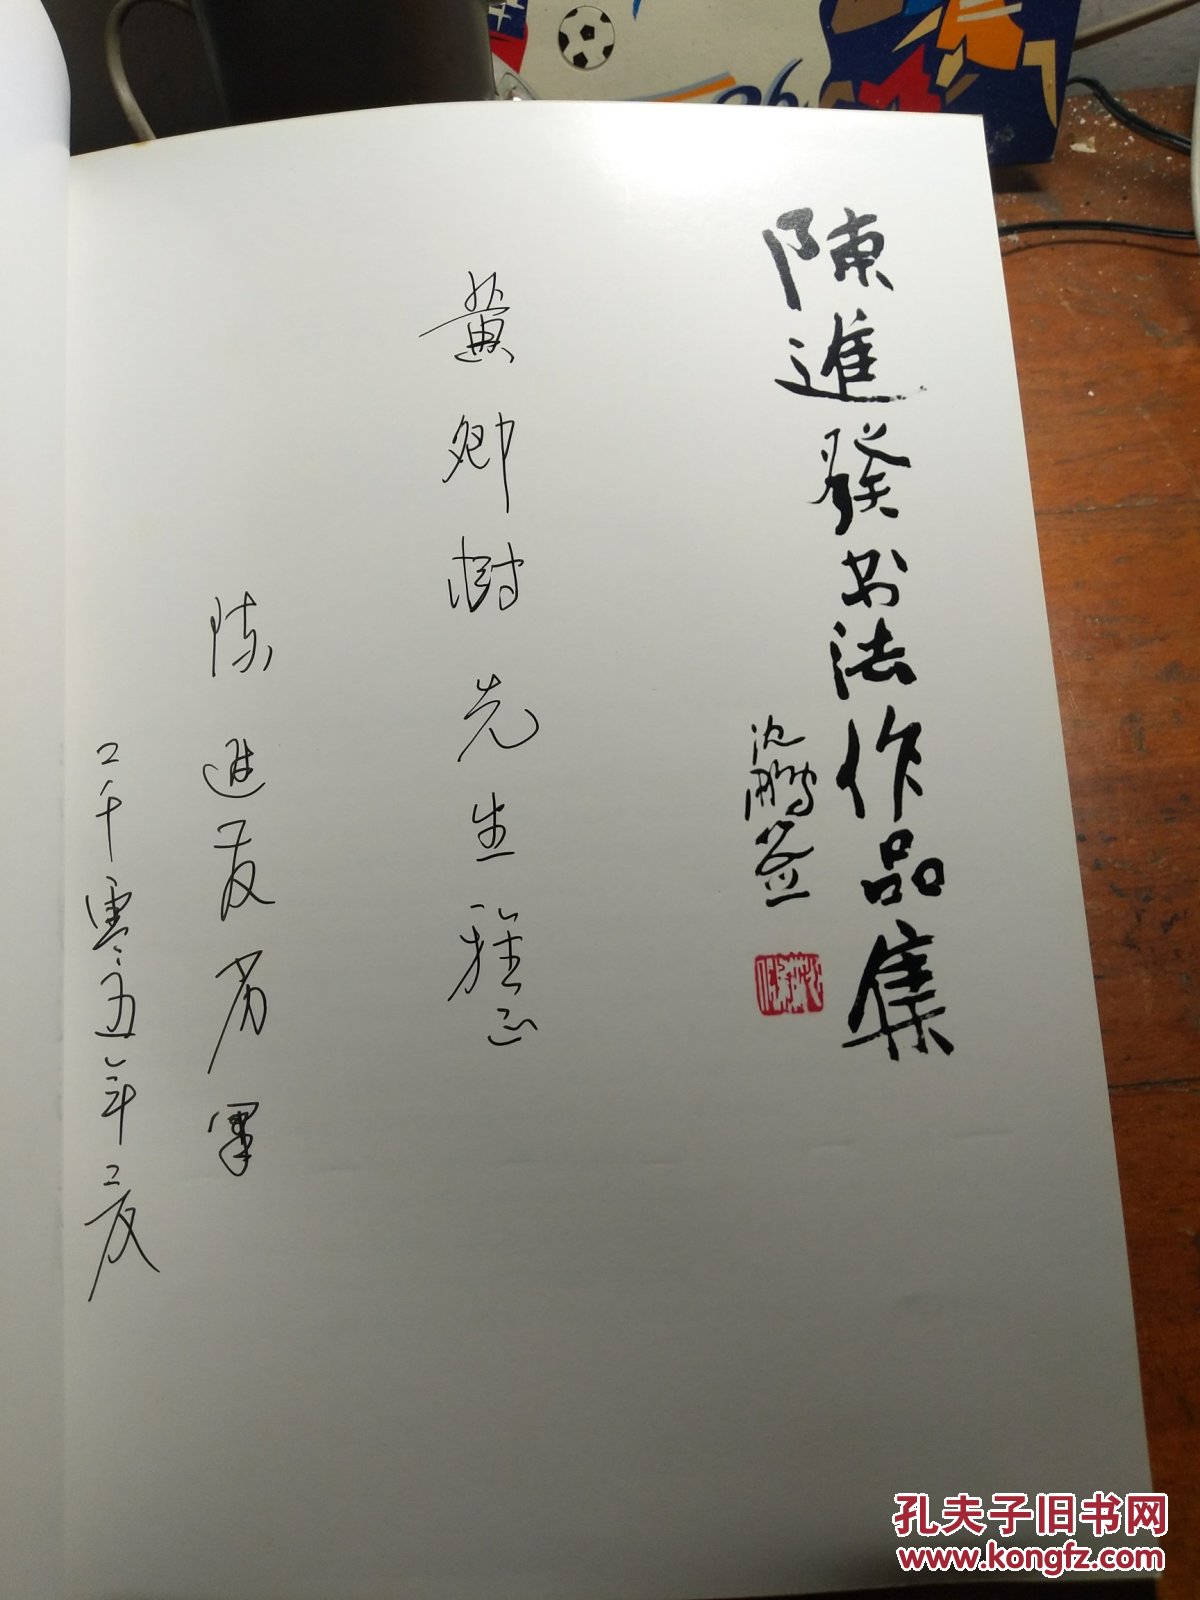 陳進發书法作品集
沈鹏签
黄卿樹先生雅正
陈进发敬署
二千零五年二度
孔夫子旧书网
www.kongfz.com